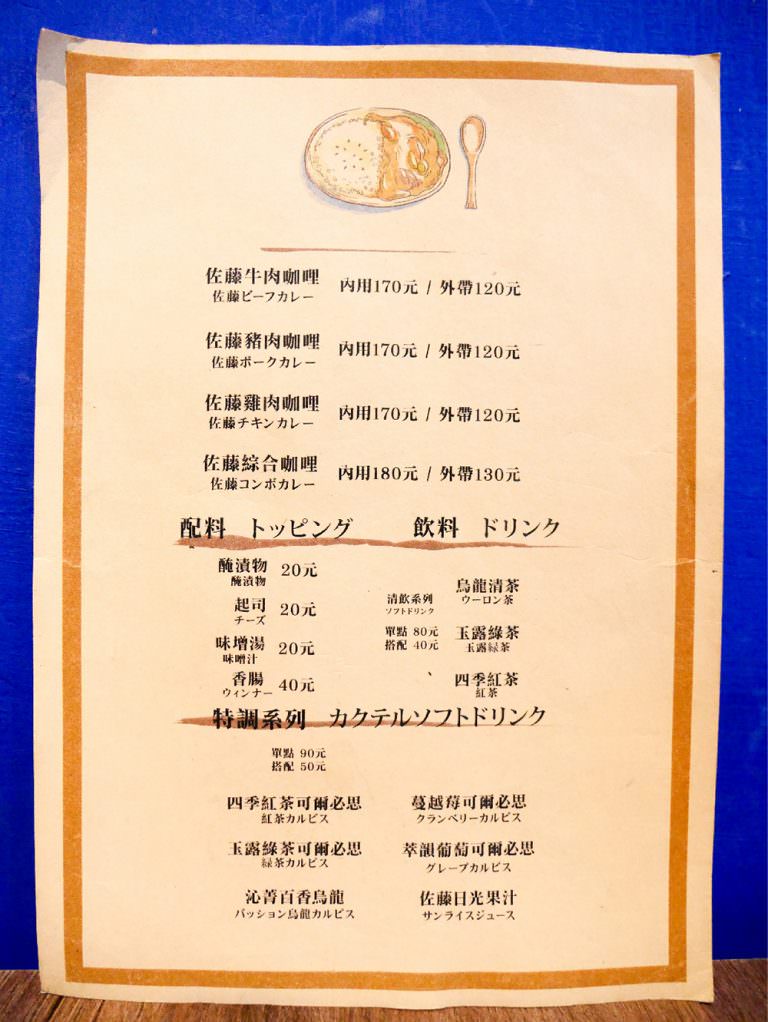 佐藤牛肉咖哩 內用170元 / 外帶120元
佐藤ビーフカレー
佐藤豬肉咖哩 內用170元 / 外帶120元
佐藤ポークカレー
佐藤雞肉咖哩 內用170元 / 外帶120元
佐藤チキンカレー
佐藤綜合咖哩 內用180元 / 外帶130元
佐藤コンボカレー
配料 トッピング
醃漬物 20元
醃漬物
起司 20元
チーズ
味增湯 20元
味噌汁
香腸 40元
ウィンナー
飲料 ドリンク
清飲系列
ソフトドリンク
單點 80元
搭配 40元
烏龍清茶
ウーロン茶
玉露綠茶
玉露緑茶
四季紅茶
紅茶
特調系列 カクテルソフトドリンク
單點 90元
搭配 50元
四季紅茶可爾必思
紅茶カルピス
蔓越莓可爾必思
クランベリーカルピス
玉露綠茶可爾必思
緑茶カルピス
萃韻葡萄可爾必思
グレープカルピス
沁菁百香烏龍
パッション烏龍カルピス
佐藤日光果汁
サンライスジュース